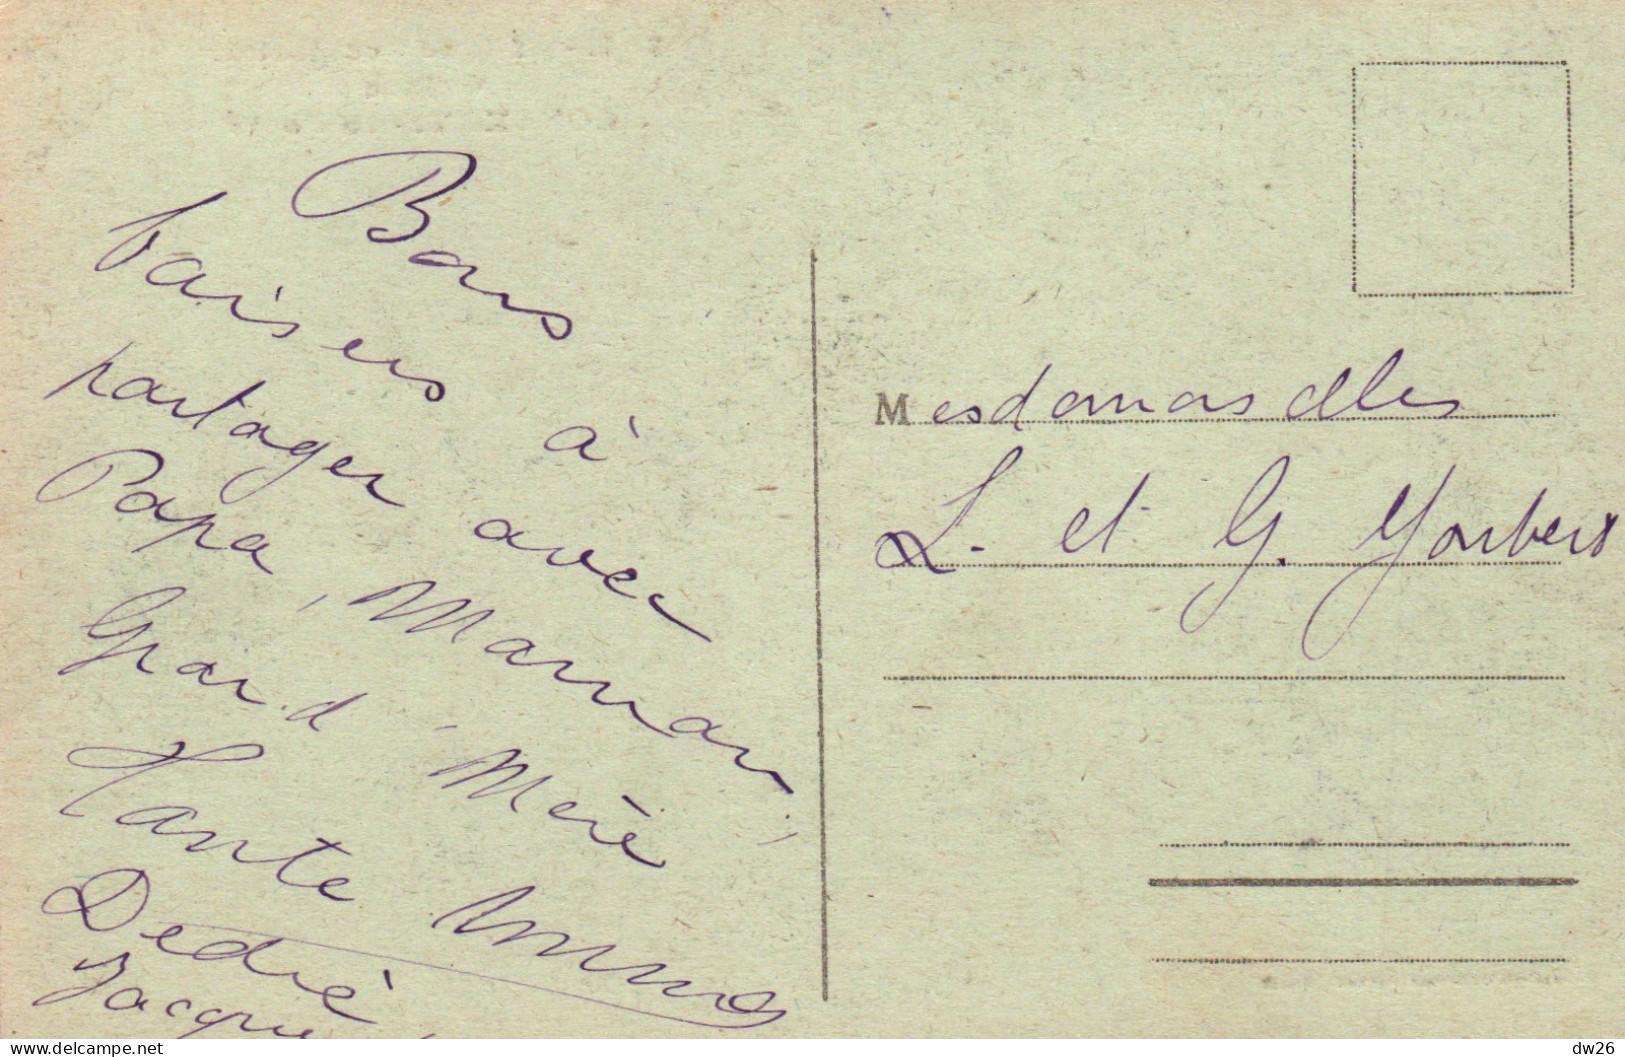 Bons
baisers à
partager avec
Papa, Maman,
Grand-Mère
Tante
Dédié
Jacque
Mesdemoiselles
L. et G.
www.delcampe.net
dw26